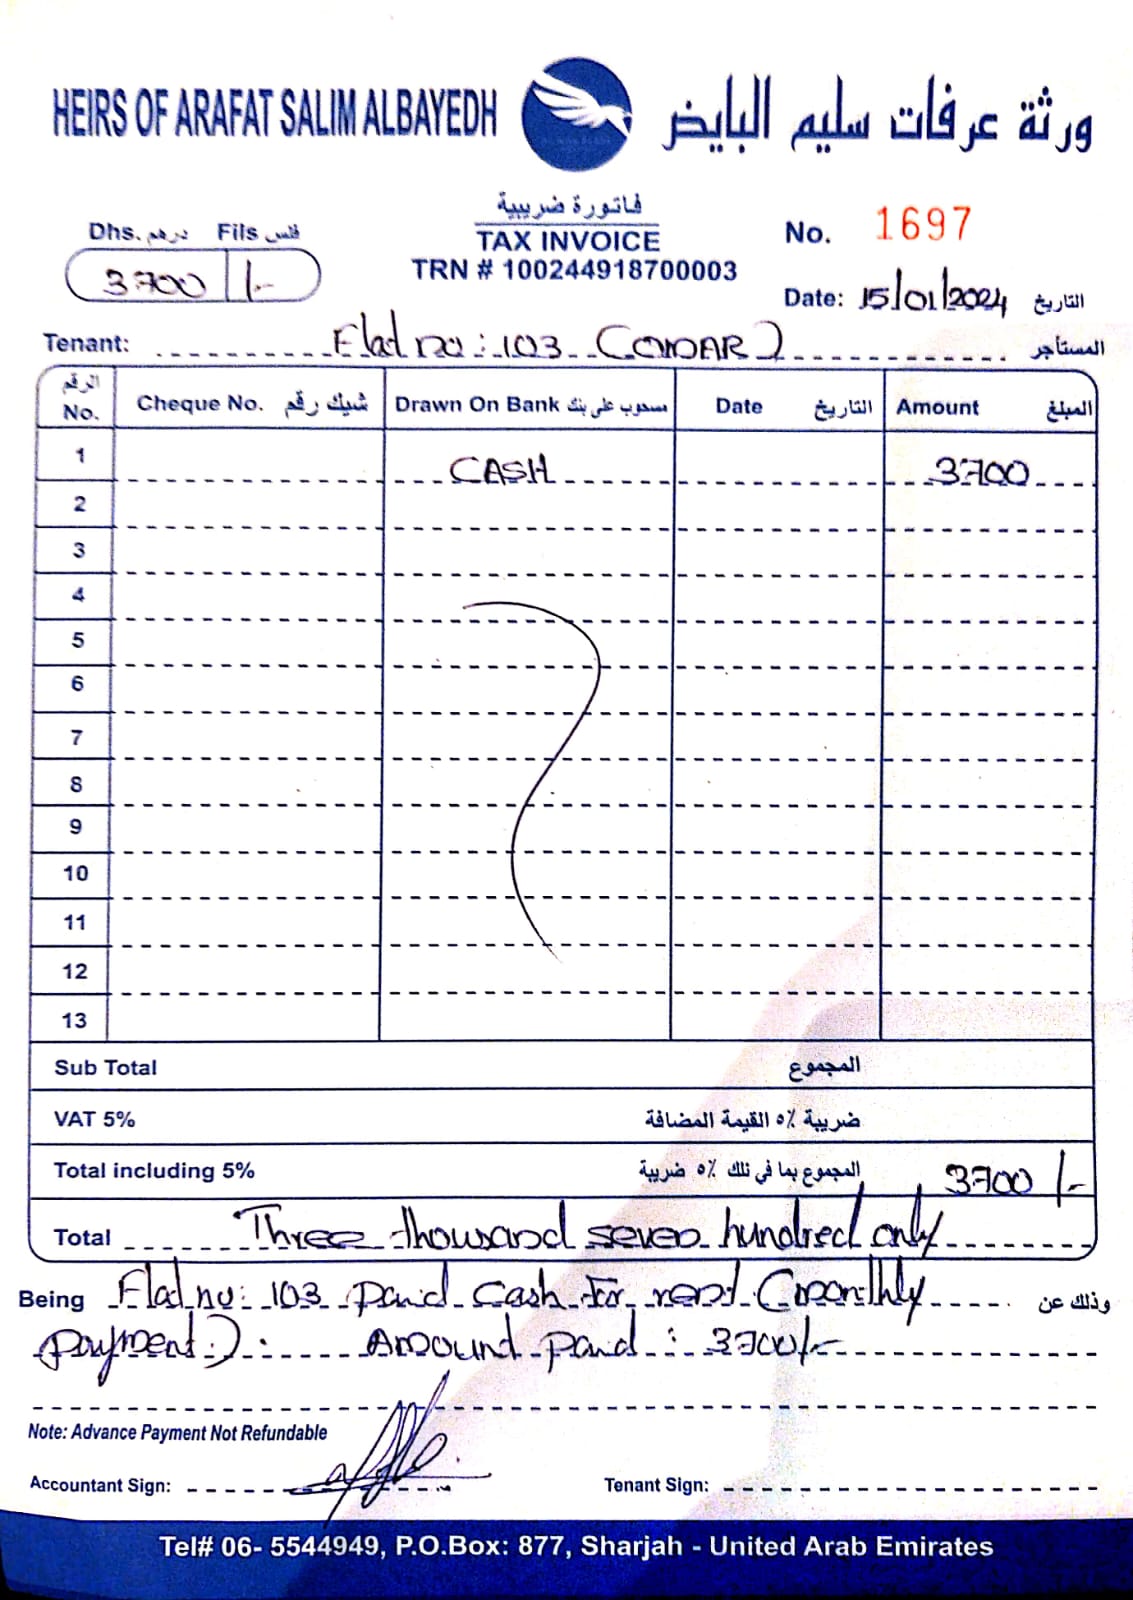 HEIRS OF ARAFAT SALIM ALBAYEDH ورثة عرفات سليم البايض
فاتورة ضريبية
TAX INVOICE
TRN # 100244918700003
Dhs. درهم Fils فلس
3700 /-
No. 1697
Date: 15/01/2024 التاريخ
Tenant: Flat no: 103 (OMAR) المستأجر
الرقم No. Cheque No. شيك رقم Drawn On Bank مسحوب على بنك Date التاريخ Amount المبلغ
1 CASH 3700
2
3
4
5
6
7
8
9
10
11
12
13
Sub Total المجموع
VAT 5% ضريبة ٥٪ القيمة المضافة
Total including 5% المجموع بما في ذلك ٥٪ ضريبة 3700 /-
Total Three thousand seven hundred only
Being Flat no: 103 paid cash for rent (monthly وذلك عن
payment) : Amount paid : 3700/-
Note: Advance Payment Not Refundable
Accountant Sign: Tenant Sign:
Tel# 06- 5544949, P.O.Box: 877, Sharjah - United Arab Emirates